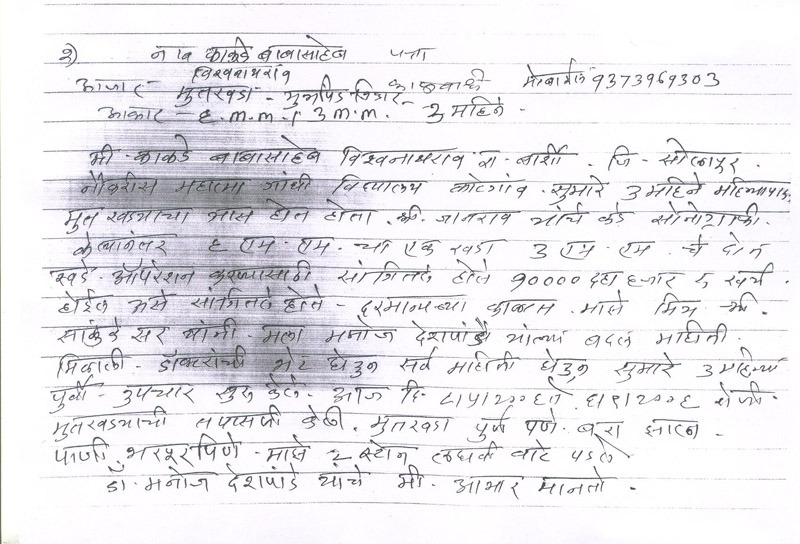 २) नाव काकडे बाबासाहेब पत्ता
विश्वनाथराव
आजार - मुतखडा - मुत्रपिंड विकार - कालावधी मोबाईल ९३७३९६९३०३
आकार - ६ m.m. / 3 m.m. - ३ महिने -
मी - काकडे बाबासाहेब विश्वनाथराव रा - बार्शी - जि - सोलापूर.
नौकरीस महात्मा गांधी विद्यालय सुमारे ३ महिने
मुत खड्याचा त्रास होत होता. जानराव कडे सोनोग्राफी.
केल्यानंतर ६ एम. एम. चा एक खडा ३ एम. एम. चे दोन
खडे - ऑपरेशन करण्यासाठी सांगितले होते १०००० दहा हजार रु खर्च.
होईल असे सांगितले होते - दरम्यानच्या काळात माझे मित्र श्री.
सर यांनी मला मनोज देशपांडे यांच्या बद्दल माहिती
मिळाली - डॉक्टरांची भेट घेऊन सर्व माहिती घेऊन सुमारे ३ महिन्यां
पुर्वी - उपचार सुरू केले - आज दि - ८।५।२००८ ते. रोजी -
मुतखड्याची तपासणी केली. मुतखडा पुर्ण पणे - बरा झाला -
पाणी भरपूर पिणे - माझे २ स्टोन लघवी वाटे पडले
डॉ. मनोज देशपांडे यांचे मी - आभार मानतो -